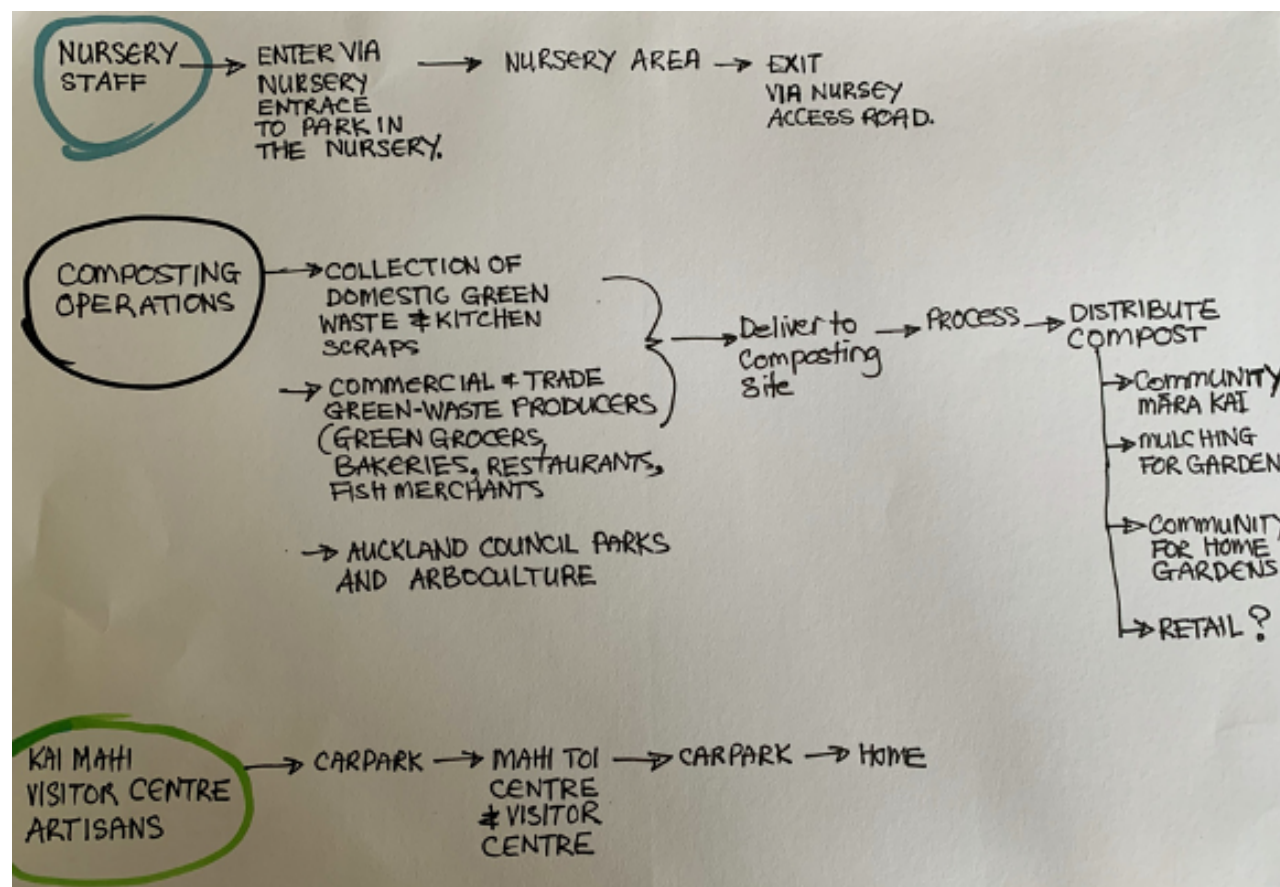 NURSERY
STAFF
ENTER VIA
NURSERY
ENTRACE
TO PARK IN
THE NURSERY.
NURSERY AREA
EXIT
VIA NURSEY
ACCESS ROAD.
COMPOSTING
OPERATIONS
COLLECTION OF
DOMESTIC GREEN
WASTE & KITCHEN
SCRAPS
COMMERCIAL & TRADE
GREEN-WASTE PRODUCERS
(GREEN GROCERS,
BAKERIES, RESTAURANTS,
FISH MERCHANTS
AUCKLAND COUNCIL PARKS
AND ARBOCULTURE
Deliver to
Composting
Site
PROCESS
DISTRIBUTE
COMPOST
COMMUNITY
MARA KAI
MULCHING
FOR GARDEN
COMMUNITY
FOR HOME
GARDENS
RETAIL ?
KAI MAHI
VISITOR CENTRE
ARTISANS
CARPARK
MAHI TOI
CENTRE
& VISITOR
CENTRE
CARPARK
HOME